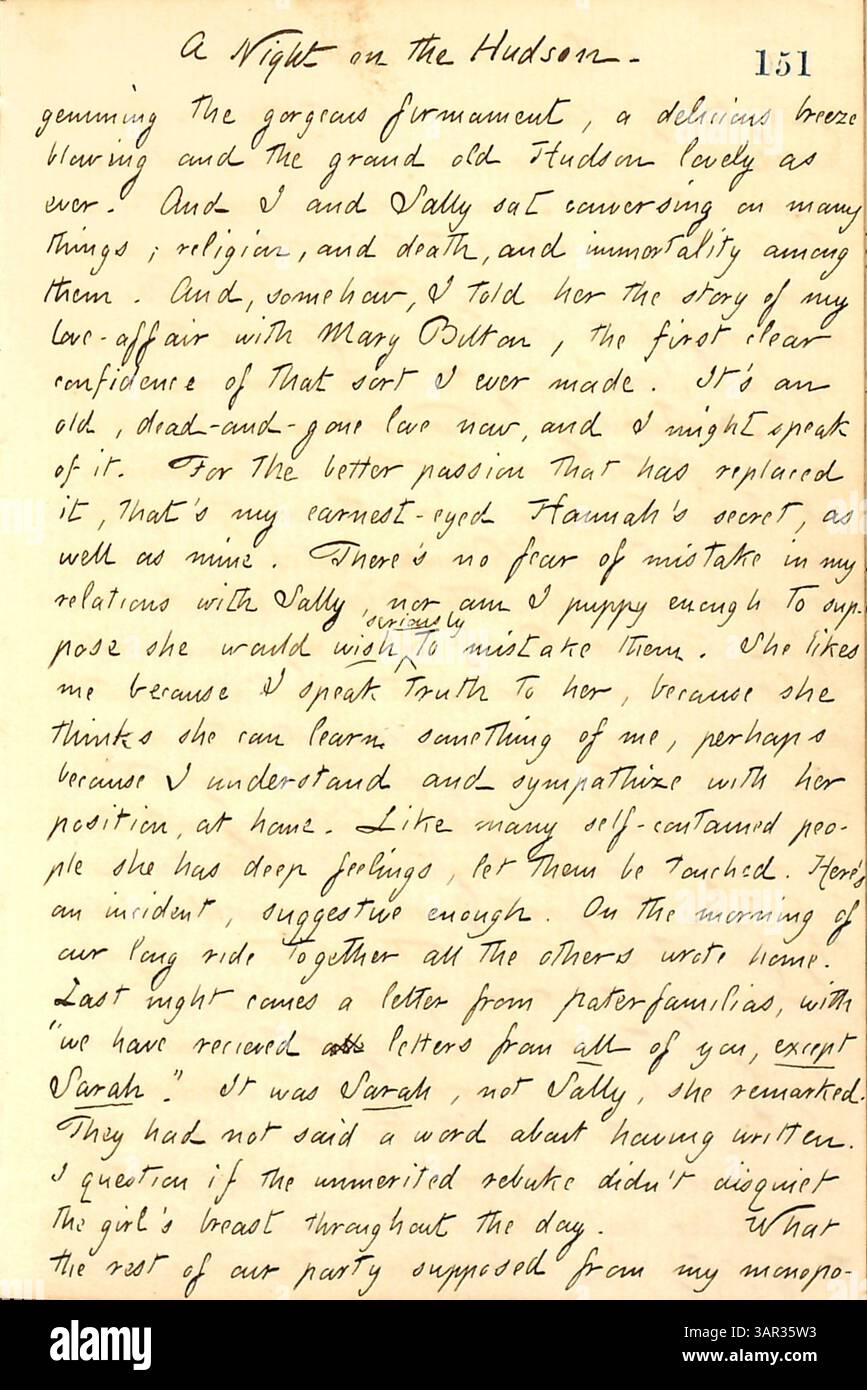 A Night on the Hudson.
151
gemming the gorgeous firmament, a delicious breeze
blowing and the grand old Hudson lovely as
ever. And I and Sally sat conversing on many
things; religion, and death, and immortality among
them. And, somehow, I told her the story of my
love-affair with Mary Bilton, the first clear
confidence of that sort I ever made. It's an
old, dead-and-gone love now, and I might speak
of it. For the better passion that has replaced
it, that's my earnest-eyed Hannah's secret, as
well as mine. There's no fear of mistake in my
relations with Sally, nor am I puppy enough to sup-
seriously
pose she would wish ^ to mistake them. She likes
me because I speak truth to her, because she
thinks she can learn something of me, perhaps
because I understand and sympathize with her
position, at home. Like many self-contained peo-
ple she has deep feelings, let them be touched. Here's
an incident, suggestive enough. On the morning of
our long ride together all the others wrote home.
Last night comes a letter from paterfamilias, with
"we have recieved all letters from all of you, except
Sarah." It was Sarah, not Sally, she remarked.
They had not said a word about having written.
I question if the unmerited rebuke didn't disquiet
the girl's breast throughout the day. What
the rest of our party supposed from my monopo-
alamy
Image ID: 3AR35W3
www.alamy.com